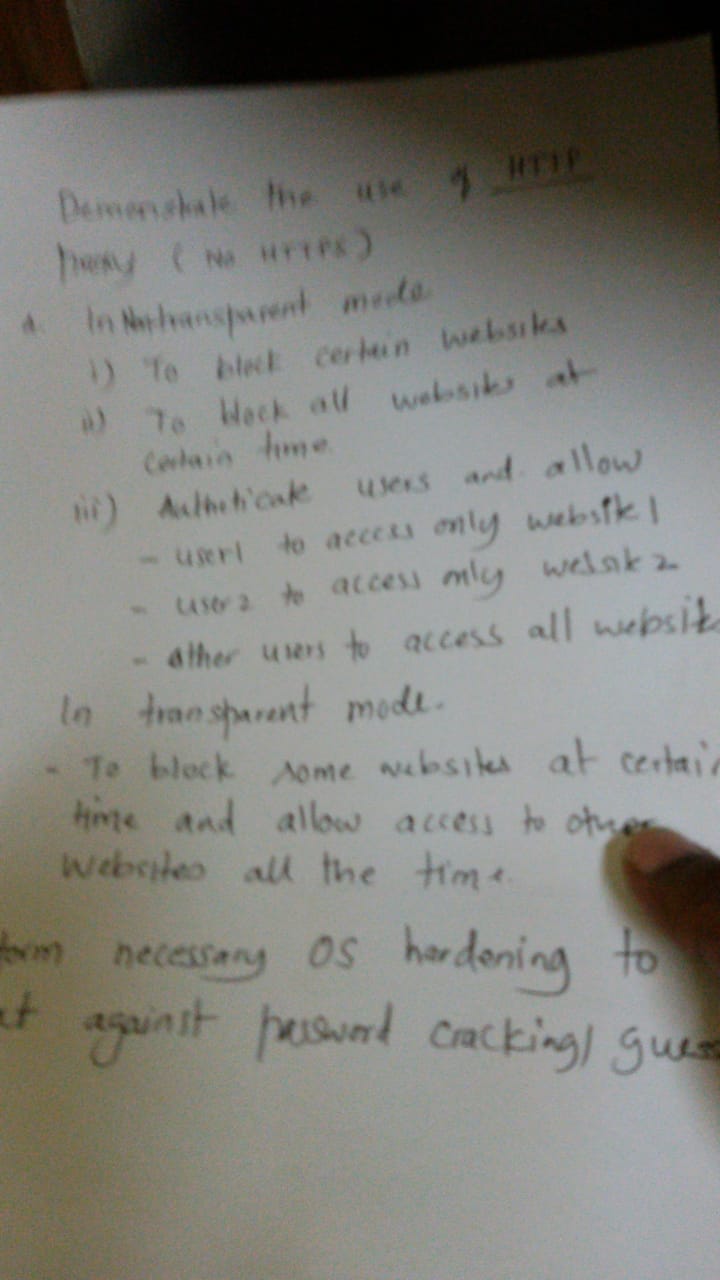 Demonstrate the use of HTTP
Proxy (No HTTPS)
a. In Nontransparent mode
i) To block certain websites
ii) To block all websites at
certain time.
iii)Autheticate users and allow
- user1 to access only website 1
- user2 to access only website 2
- other users to access all
In transparent mode.
- To block some websites at
time and allow access to other
websites all the time.
necessary OS hardening to
against password cracking/